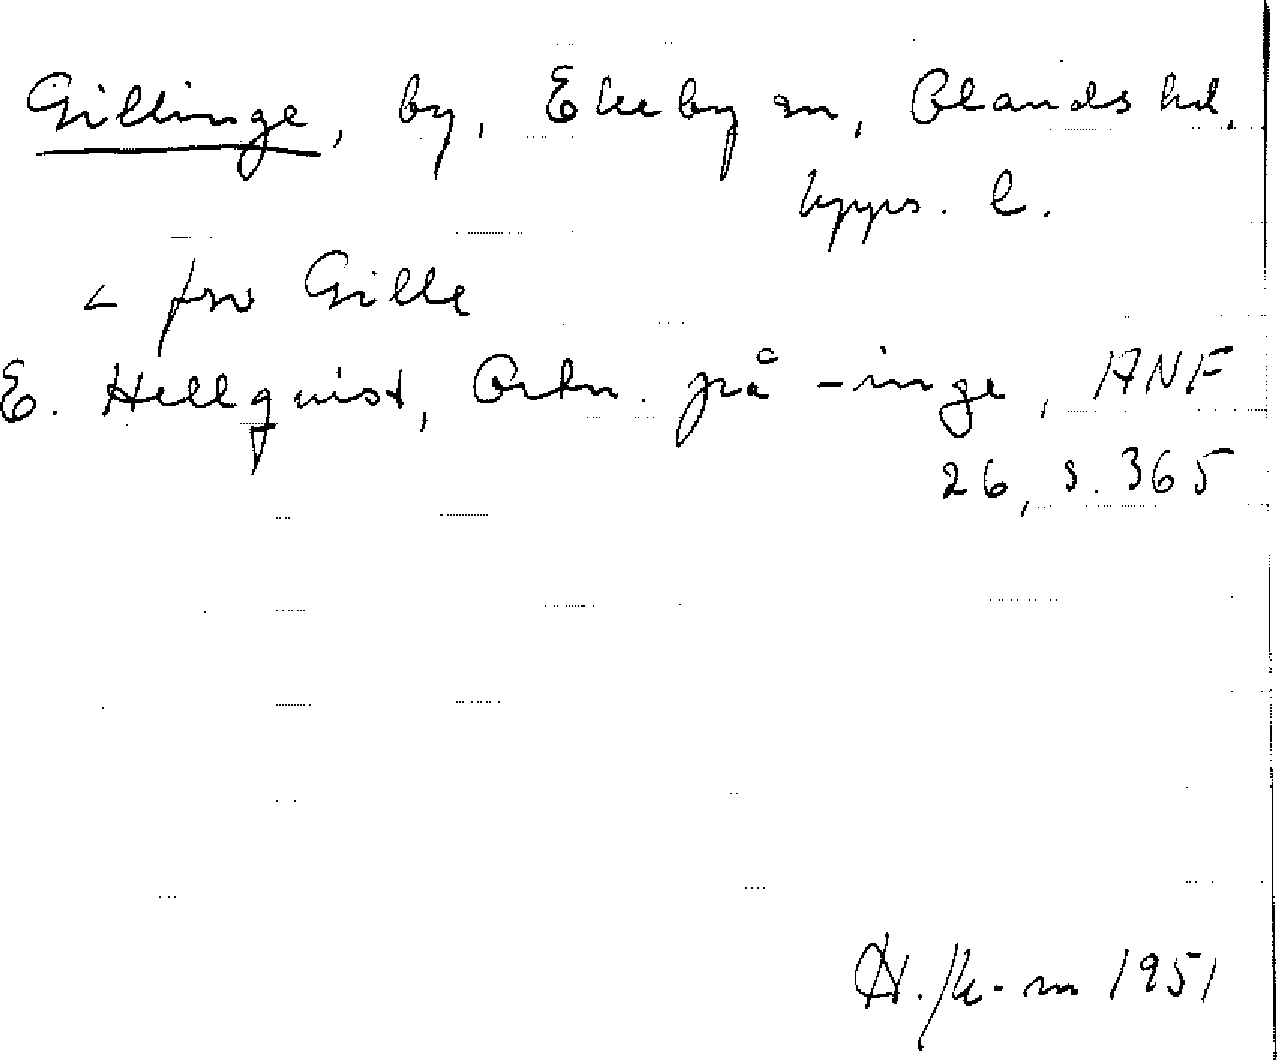 Gillinge, by, Ekeby sn, Olands hd,
Upps. l.
< fsv Gille
E. Hellquist, Ortn. på -inge, ANF
26, s. 365
1951